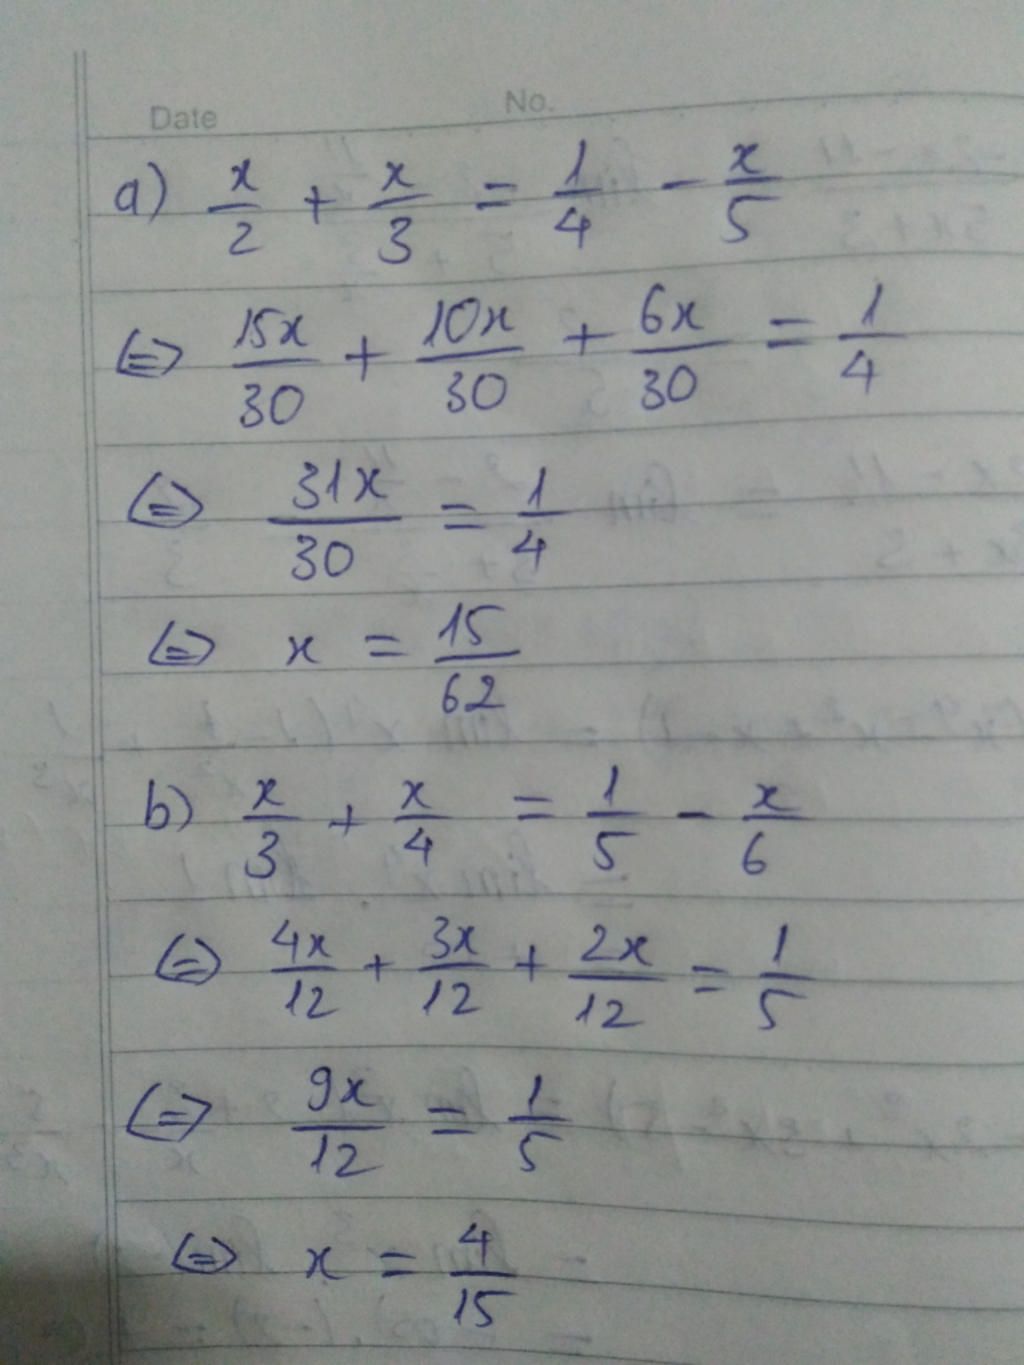 Date No.
a) x/2 + x/3 = 1/4 - x/5
⇔ 15x/30 + 10x/30 + 6x/30 = 1/4
⇔ 31x/30 = 1/4
⇔ x = 15/62
b) x/3 + x/4 = 1/5 - x/6
⇔ 4x/12 + 3x/12 + 2x/12 = 1/5
⇔ 9x/12 = 1/5
⇔ x = 4/15